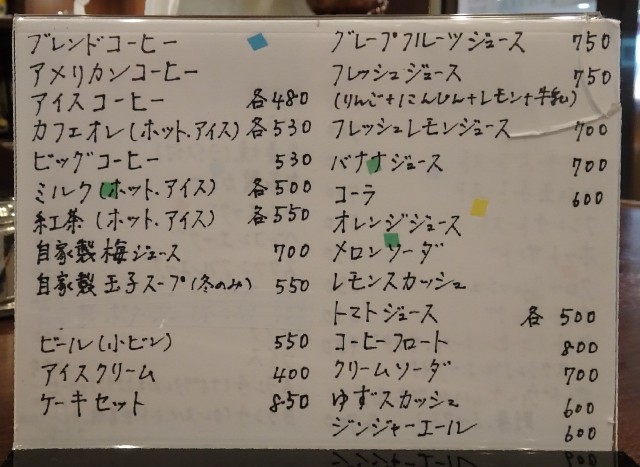 ブレンドコーヒー
アメリカンコーヒー
アイスコーヒー 各480
カフェオレ(ホット.アイス) 各530
ビッグコーヒー 530
ミルク(ホット.アイス) 各500
紅茶(ホット.アイス) 各550
自家製梅ジュース 700
自家製玉子スープ(冬のみ) 550
ビール(小ビン) 550
アイスクリーム 400
ケーキセット 850
グレープフルーツジュース 750
フレッシュジュース 750
(りんご+にんじん+レモン+牛乳)
フレッシュレモンジュース 700
バナナジュース 700
コーラ 600
オレンジジュース
メロンソーダ
レモンスカッシュ
トマトジュース 各500
コーヒーフロート 800
クリームソーダ 700
ゆずスカッシュ 600
ジンジャーエール 600